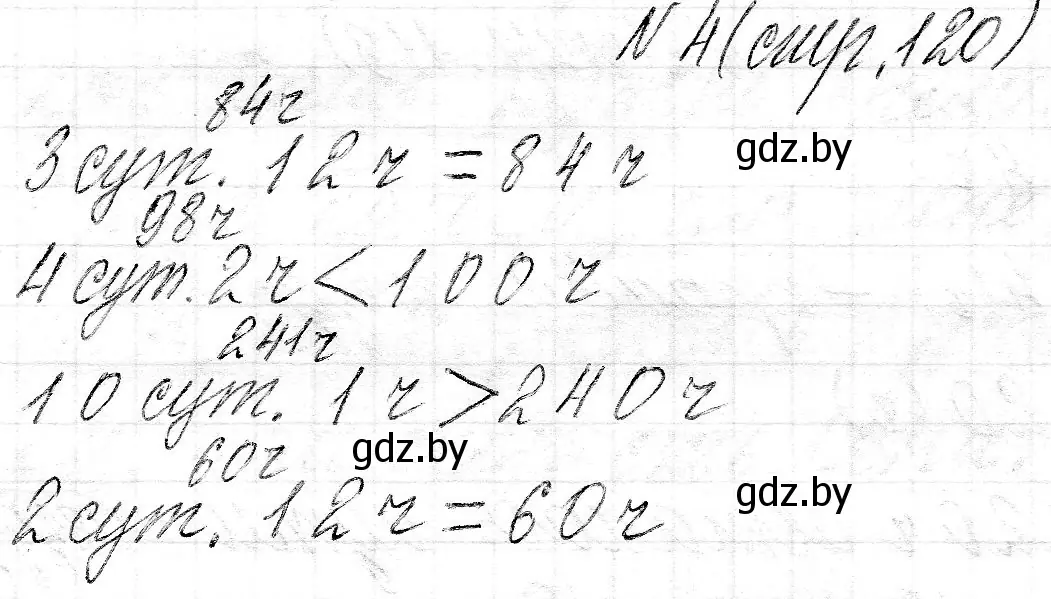 N 4 (стр. 120)
84ч
3 сут. 12 ч = 84 ч
gdz.by
98ч
4 сут. 2 ч < 100 ч
241ч
10 сут. 1 ч > 240 ч
60ч
gdz.by
2 сут. 12 ч = 60 ч
gdz.by